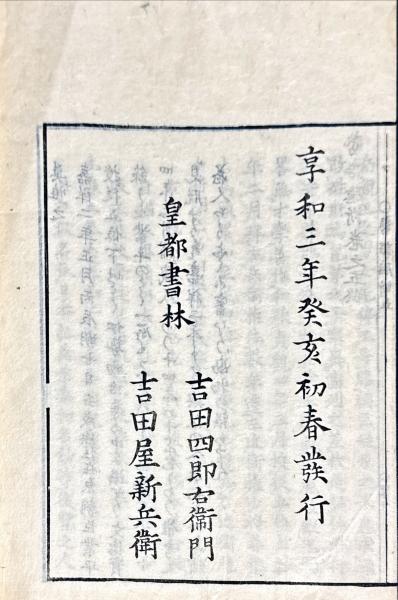 享和三年癸亥初春發行
皇都書林
吉田四郎右衞門
吉田屋新兵衛